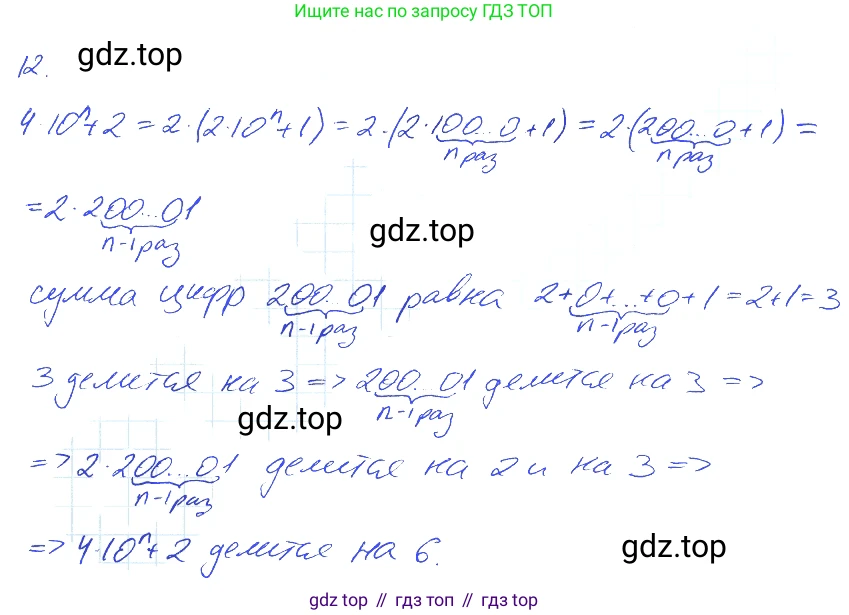 Ищите нас по запросу ГДЗ ТОП
gdz.top
12.
4·10ⁿ+2 = 2·(2·10ⁿ+1) = 2·(2·100...0+1) = 2·(200...0+1) =
n раз n раз
= 2·200...01
n-1 раз
gdz.top
сумма цифр 200...01 равна 2+0+...+0+1=2+1=3
n-1 раз n-1 раз
3 делится на 3 => 200...01 делится на 3 =>
n-1 раз
gdz.top
=> 2·200...01 делится на 2 и на 3 =>
n-1 раз
=> 4·10ⁿ+2 делится на 6.
gdz.top
gdz top // гдз топ // gdz top // гдз топ